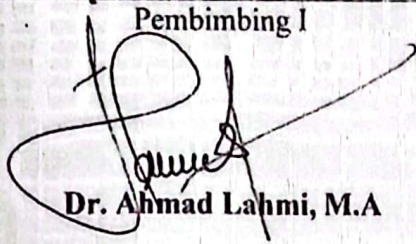 Pembimbing I
Dr. Ahmad Lahmi, M.A